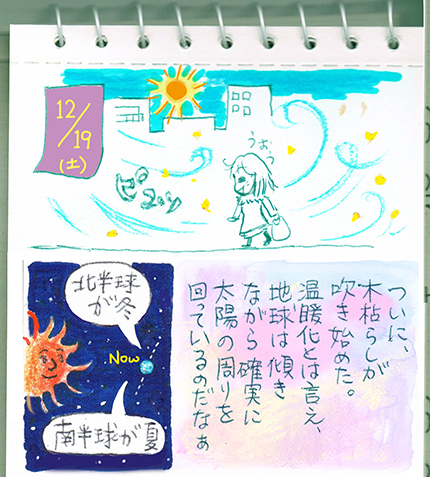 12/19
(土)
うおっ
ピューッ
北半球
が冬
Now
南半球が夏
ついに、
木枯らしが
吹き始めた。
温暖化とは言え、
地球は傾き
ながら確実に
太陽の周りを
回っているのだなぁ